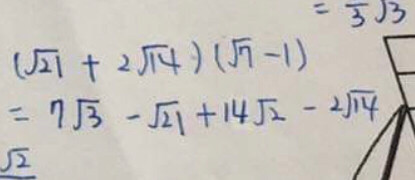 = 7/3 √3
(√21 + 2√14)(√7 - 1)
= 7√3 - √21 + 14√2 - 2√14
√2